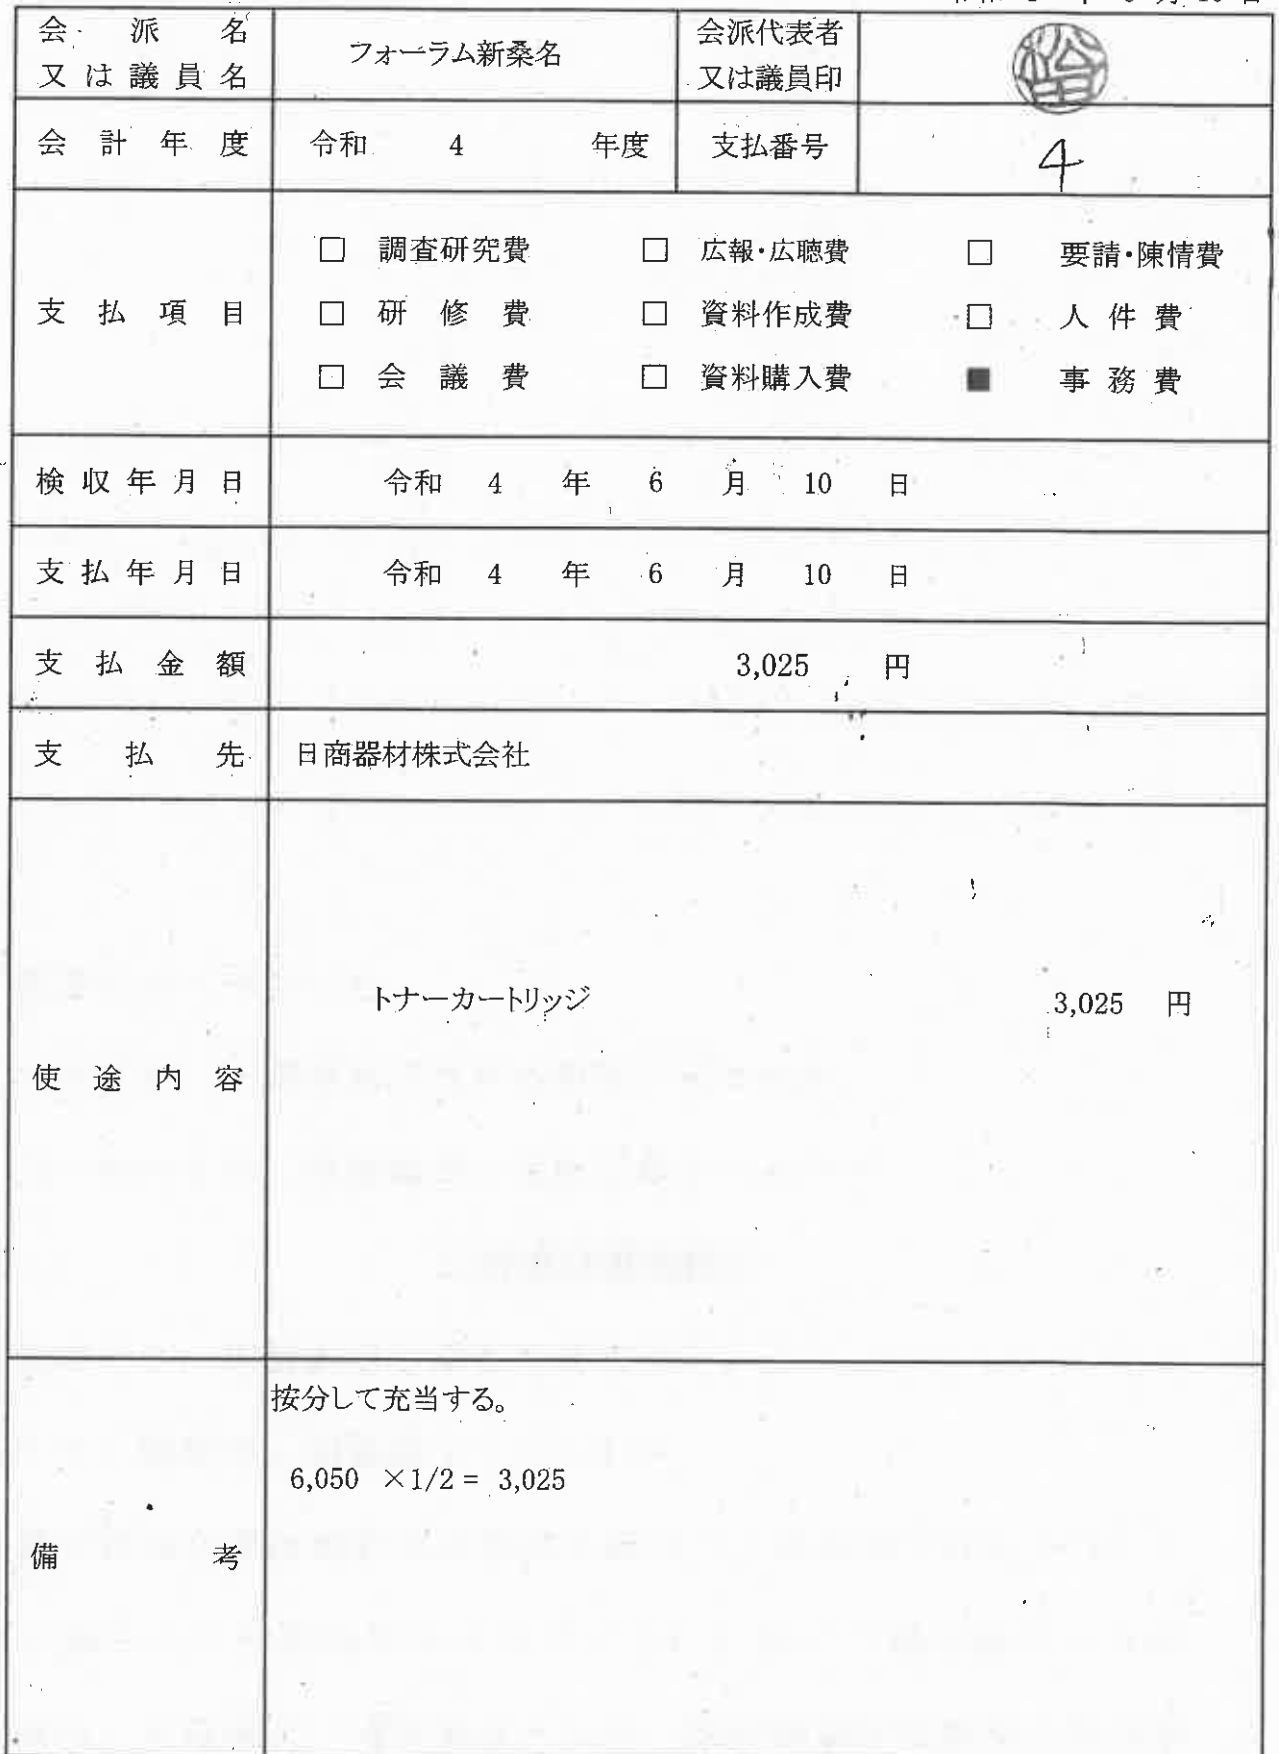 会派名
又は議員名
フォーラム新桑名
会派代表者
又は議員印
会計年度
令和 4 年度
支払番号
4
支払項目
□ 調査研究費 □ 広報・広聴費 □ 要請・陳情費
□ 研修費 □ 資料作成費 □ 人件費
□ 会議費 □ 資料購入費 ■ 事務費
検収年月日
令和 4 年 6 月 10 日
支払年月日
令和 4 年 6 月 10 日
支払金額
3,025 円
支払先
日商器材株式会社
使途内容
トナーカートリッジ 3,025 円
備考
按分して充当する。
6,050 ×1/2 = 3,025